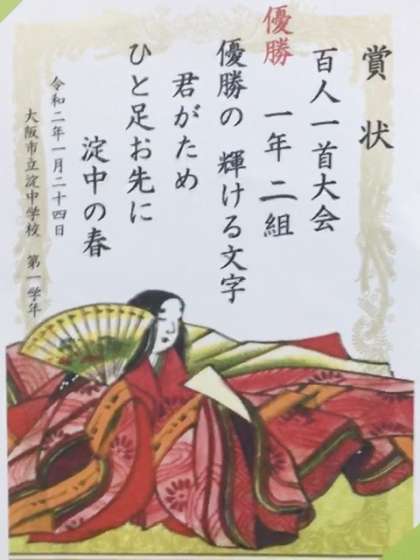 賞状
百人一首大会
優勝 一年二組
優勝の 輝ける文字
君がため
ひと足お先に
淀中の春
令和二年一月二十四日
大阪市立淀中学校 第一学年